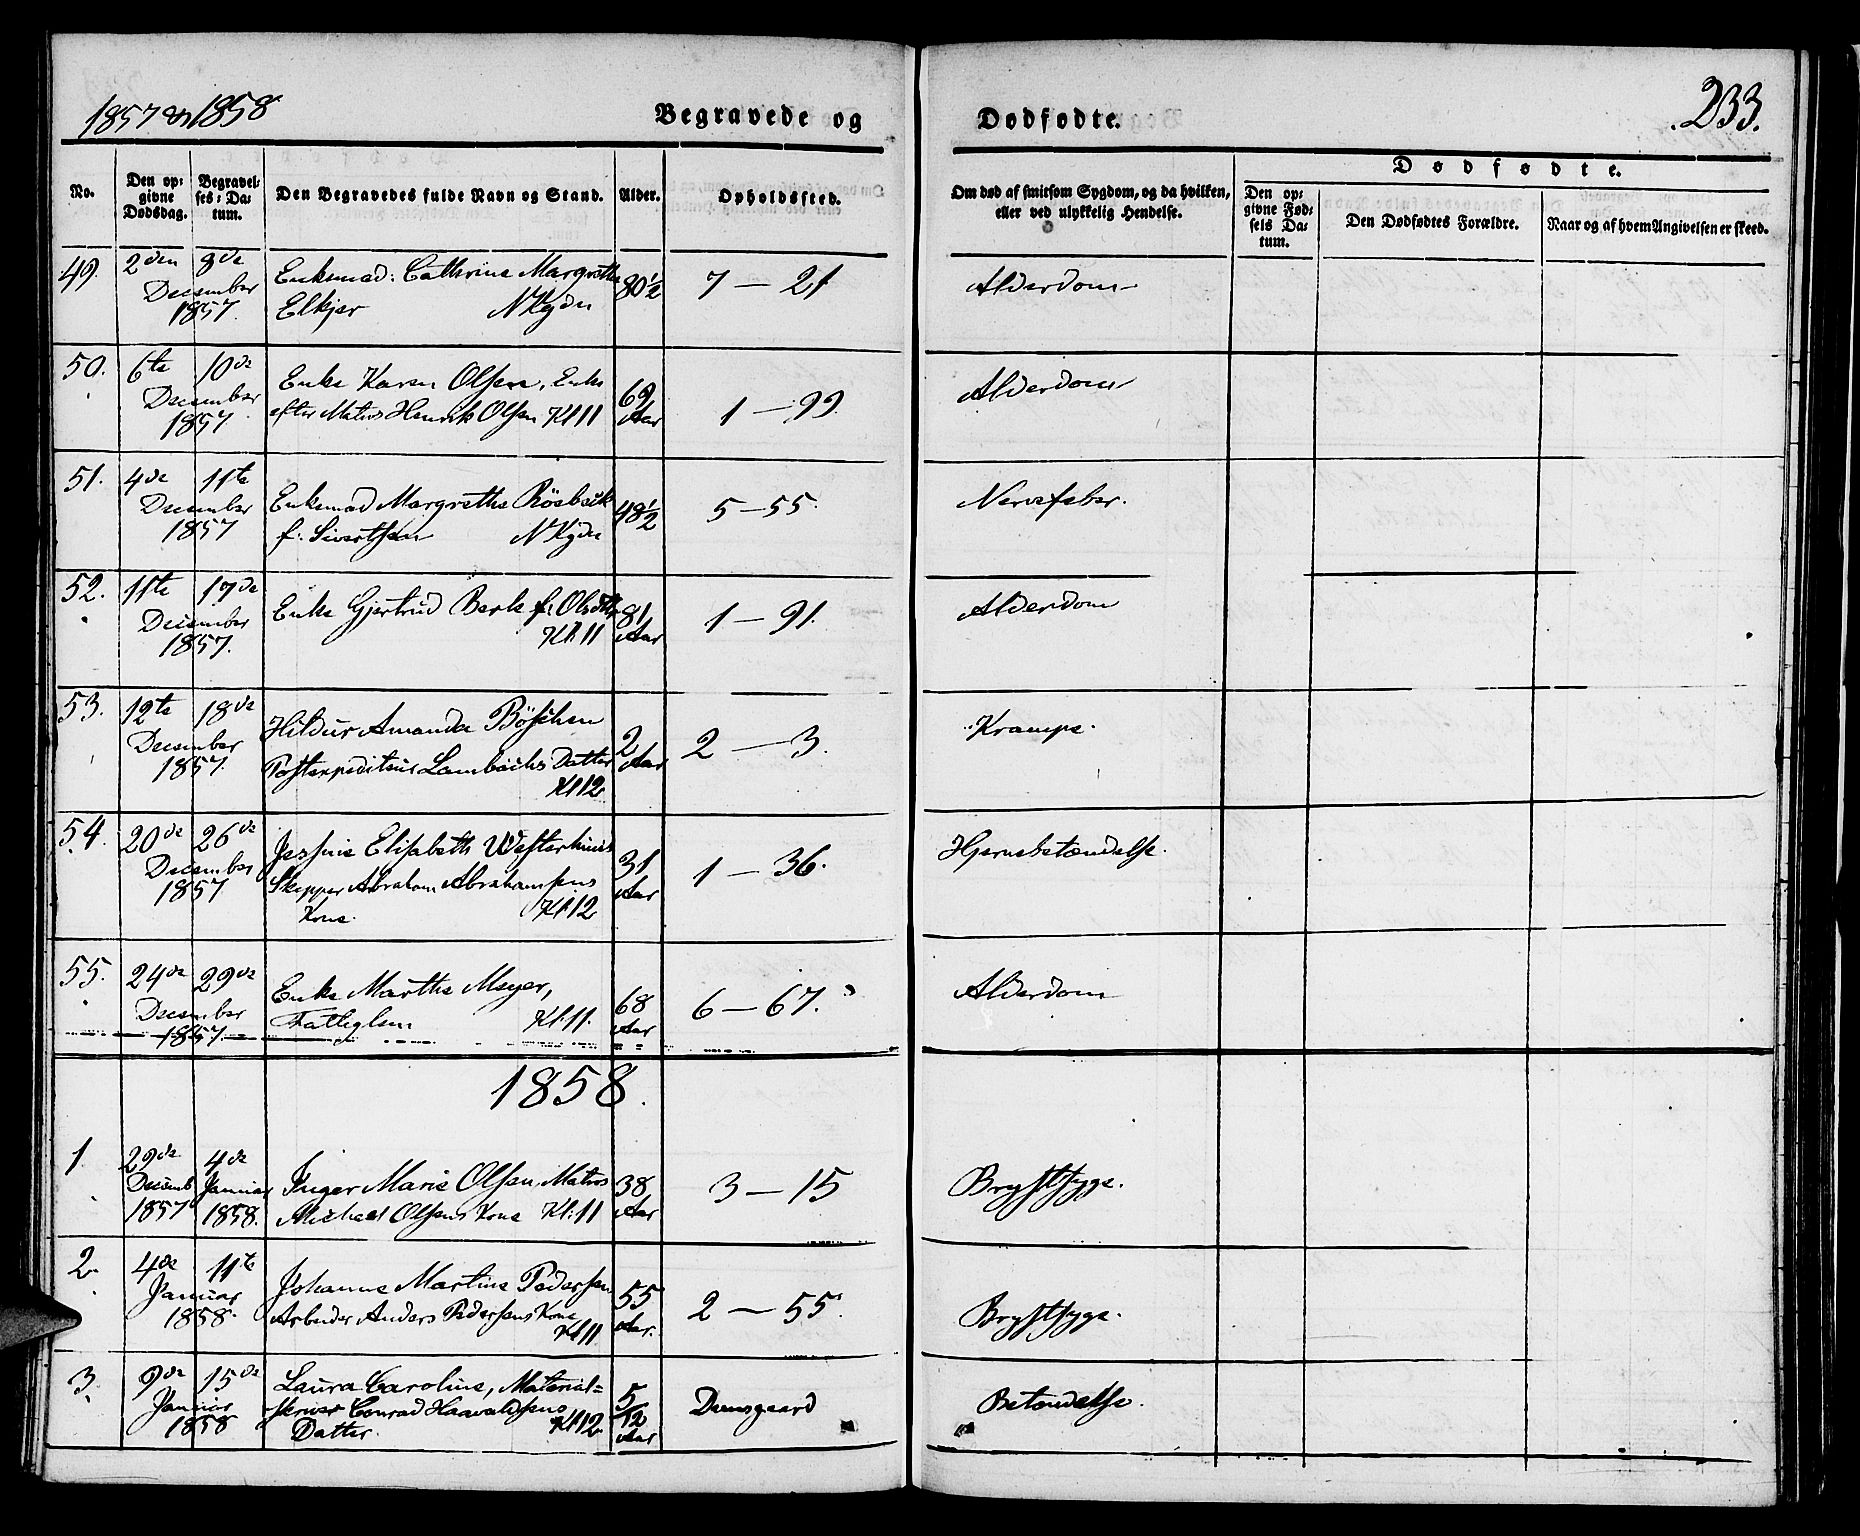 1857 & 1858 Begravede og Dødfødte. 233.
No.
Den opgivne Dødsdag.
Begravelses-Datum.
Den Begravedes fulde Navn og Stand.
Alder.
Opholdssted.
Om død af smitsom Sygdom, og da hvilken, eller ved ulykkelig Hendelse.
Dødfødte.
Den opgivne Fødsels Datum.
Den Dødfødtes Forældre.
Naar og af hvem Angivelsen er skeed.
49. 2den 8de Enkemad: Cathrine Margrethe 80½ 7 — 21 Alderdom
December
1857. Elkjer NKgdn
50. 6te 10de Enke Karen Olsen, Enke 69 Aar 1 — 99 Alderdom
December efter Matros Henrik Olsen Kl 11
1857
51. 4de 11te Enkemad Margrethe Rösbach 48½ 5 — 55. Nervefeber.
December
1857 f. Sivertsen NKgdn
52. 11te 17de Enke Gjertrud Berle f. Olsdtr 81 Aar 1 — 91. Alderdom
December Kl. 11
1857.
53. 12te 18de Hildur Amanda Böschen 2 Aar 2 — 3. Krampe.
December Postexpediteur Lambachs Datter
1857. Kl 12
54. 20de 26de Jessine Elisabeth Westerhuus 31 Aar 1 — 36. Hjernebetændelse.
December Skipper Abraham Abrahamsens
1857 Kone. Kl. 12
55. 24de 29de Enke Marthe Meyer, 68 Aar 6 — 67. Alderdom
December Fattiglem Kl. 11.
1857.
1858.
1 29de 4de Inger Marie Olsen, Matros 38 Aar 3 — 15 Brystsyge.
Decemb Januar Michael Olsens Kone Kl: 11
1857 1858.
2. 4de 11te Johanne Martine Pedersen 55 Aar. 2 — 55. Brystsyge.
Januar Arbeider Anders Pedersens Kone
1858. Kl 11
3. 9de 15de Laura Caroline, Material= 5/12 Aar Damsgaard Betændelse.
Januar skriver Conrad Haavaldsens
1858 Datter. Kl 12